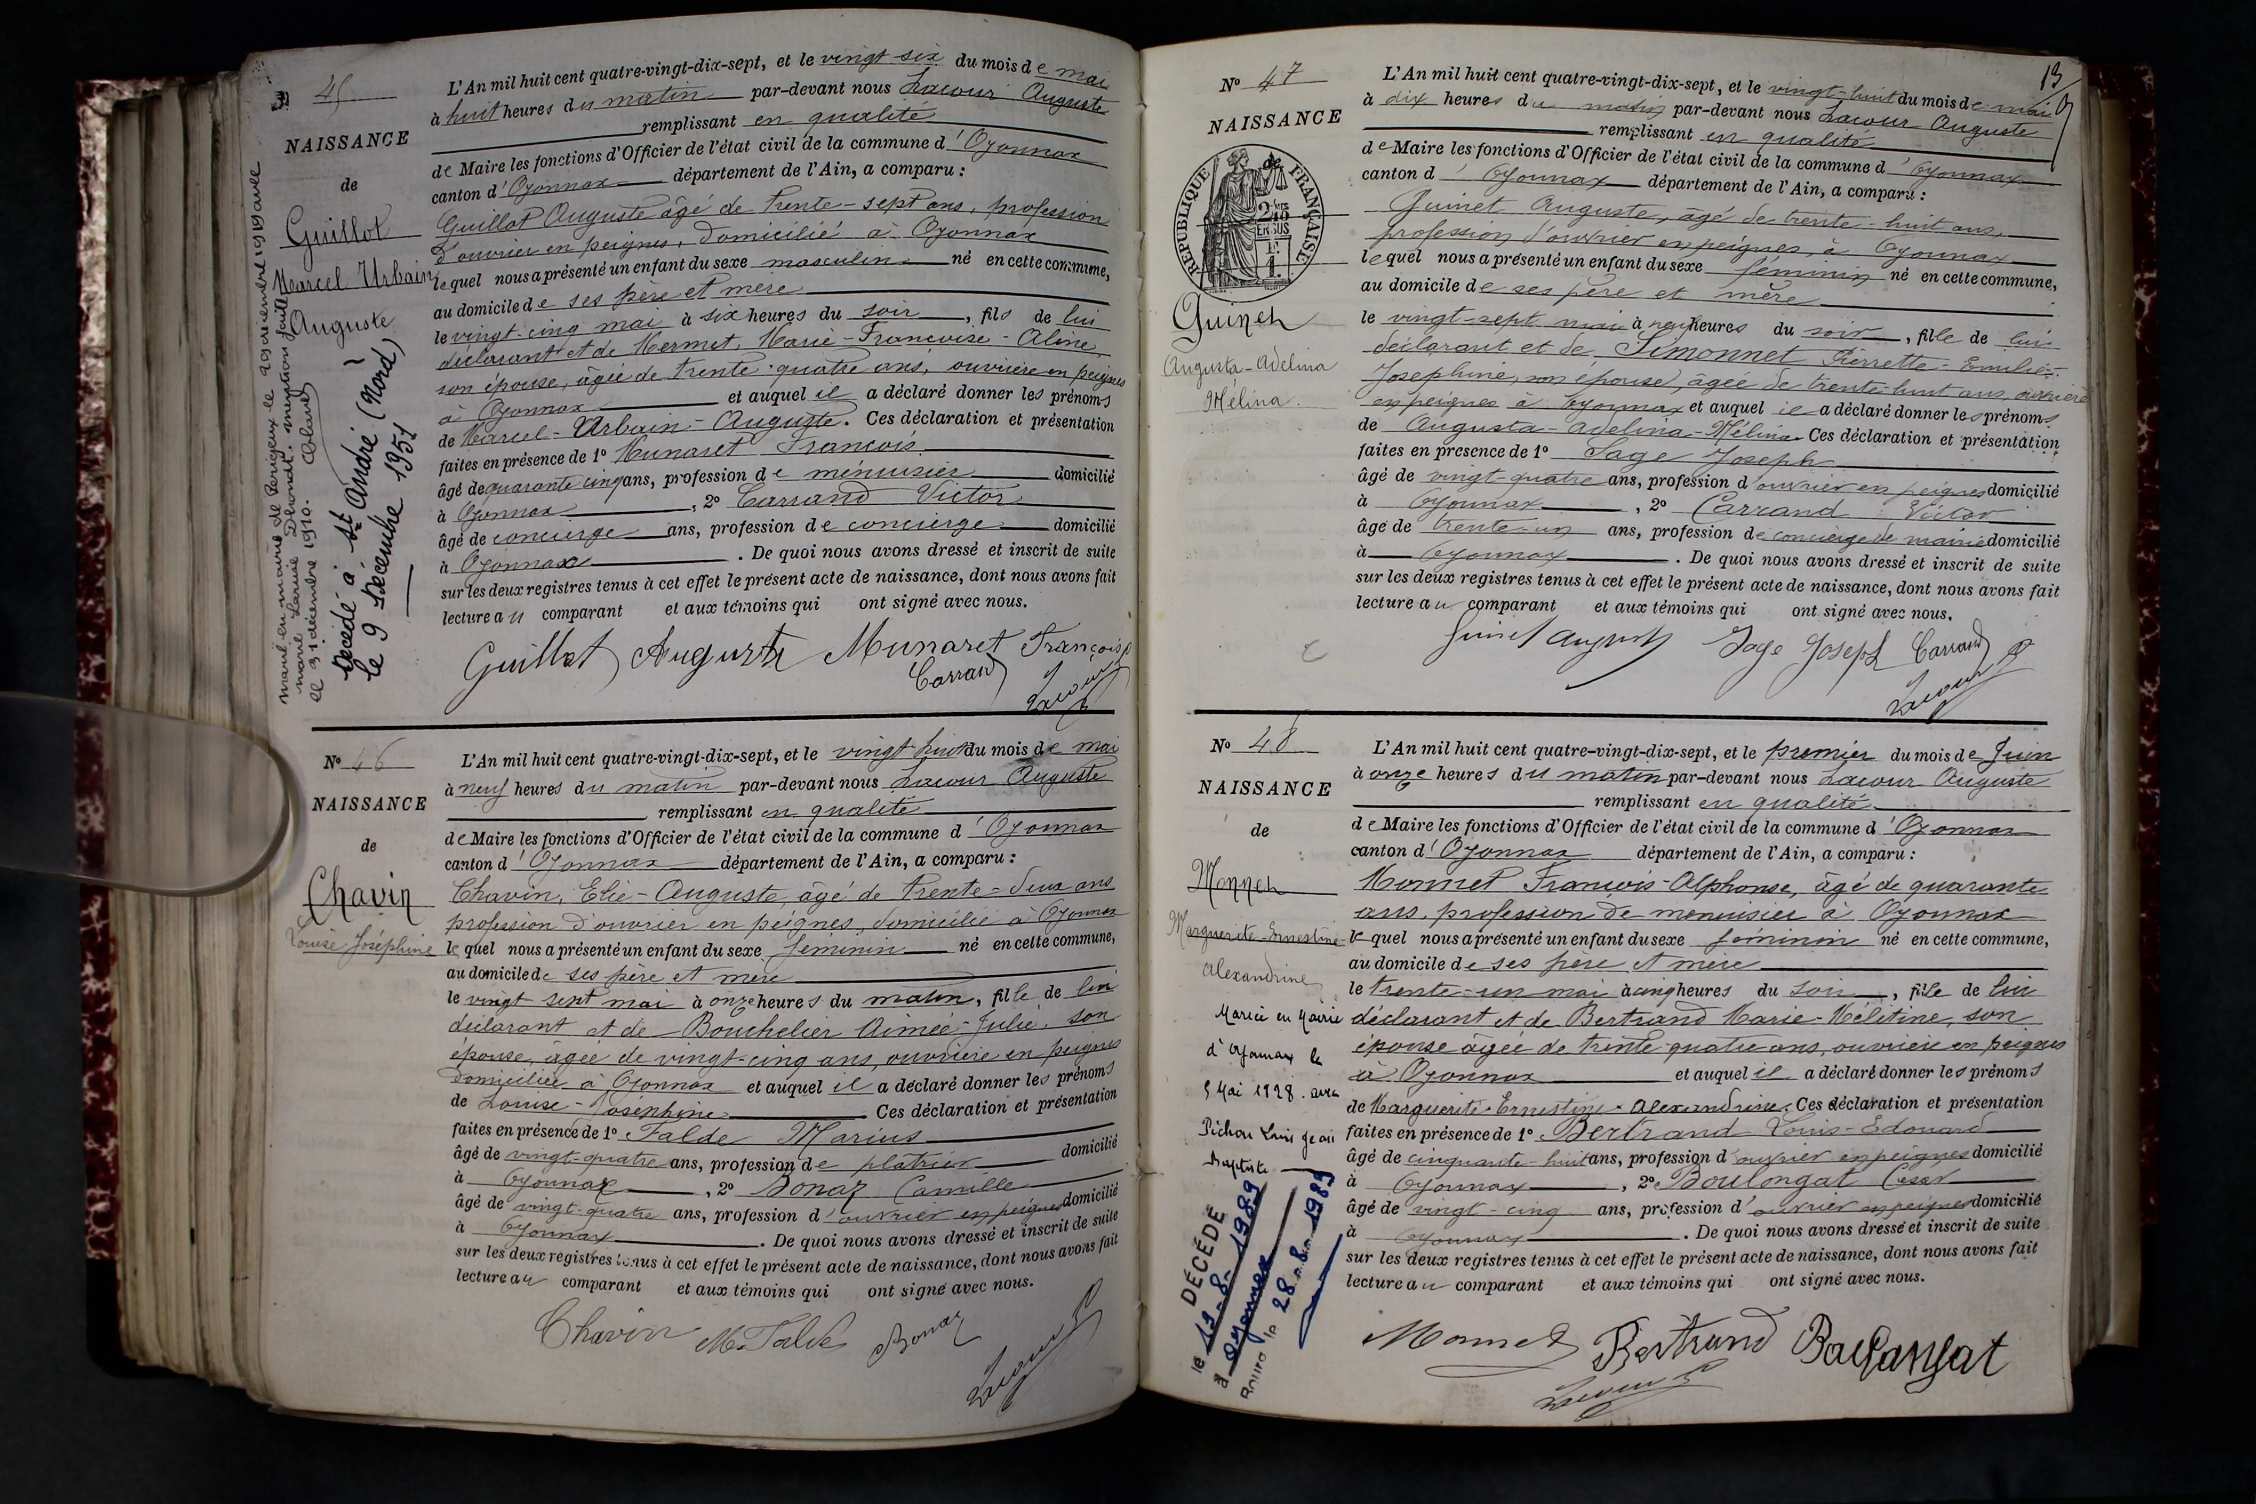 45
NAISSANCE
de
Guillot
Marcel Urbain
Auguste
Marié en mairie de Périgueux le 29 novembre 1919 avec
Marie Louise mention faite
le 31 décembre 1919.
Décédé à St André (Nord)
le 9 Décembre 1951
L'An mil huit cent quatre-vingt-dix-sept, et le vingt six du mois de mai
à huit heures du matin par-devant nous Lacour Auguste
remplissant en qualité
de Maire les fonctions d'Officier de l'état civil de la commune d'Oyonnax
canton d'Oyonnax département de l'Ain, a comparu :
Guillot Auguste âgé de trente-sept ans, profession
d'ouvrier en peignes, domicilié à Oyonnax
lequel nous a présenté un enfant du sexe masculin né en cette commune,
au domicile de ses père et mère
le vingt-cinq mai à six heures du soir, fils de lui
déclarant et de Mermet, Marie-Françoise-Aline,
son épouse, âgée de trente-quatre ans, ouvrière en peignes
à Oyonnax et auquel il a déclaré donner les prénoms
de Marcel-Urbain-Auguste. Ces déclaration et présentation
faites en présence de 1° Munaret François
âgé de quarante cinq ans, profession de menuisier domicilié
à Oyonnax, 2° Carrand Victor
âgé de concierge ans, profession de concierge domicilié
à Oyonnax. De quoi nous avons dressé et inscrit de suite
sur les deux registres tenus à cet effet le présent acte de naissance, dont nous avons fait
lecture au comparant et aux témoins qui ont signé avec nous.
Guillot Auguste Munaret François
Carrand
Lacour
N° 46
NAISSANCE
de
Chavin
Louise Joséphine
L'An mil huit cent quatre-vingt-dix-sept, et le vingt-huit du mois de mai
à neuf heures du matin par-devant nous Lacour Auguste
remplissant en qualité
de Maire les fonctions d'Officier de l'état civil de la commune d'Oyonnax
canton d'Oyonnax département de l'Ain, a comparu :
Chavin, Elie-Auguste, âgé de trente-deux ans
profession d'ouvrier en peignes, domicilié à Oyonnax
lequel nous a présenté un enfant du sexe féminin né en cette commune,
au domicile de ses père et mère
le vingt sept mai à onze heures du matin, fille de lui
déclarant et de Bouchelier Aimée-Julie, son
épouse, âgée de vingt-cinq ans, ouvrière en peignes
domiciliée à Oyonnax et auquel il a déclaré donner les prénoms
de Louise-Joséphine. Ces déclaration et présentation
faites en présence de 1° Falde Marius
âgé de vingt-quatre ans, profession de plâtrier domicilié
à Oyonnax, 2° Bonaz Camille
âgé de vingt-quatre ans, profession d'ouvrier en peignes domicilié
à Oyonnax. De quoi nous avons dressé et inscrit de suite
sur les deux registres tenus à cet effet le présent acte de naissance, dont nous avons fait
lecture au comparant et aux témoins qui ont signé avec nous.
Chavin M. Falde Bonaz
Lacour
13
N° 47
NAISSANCE
de
RÉPUBLIQUE FRANÇAISE
2/10es
EN SUS
Guinet
Augusta-Adelina
Mélina.
L'An mil huit cent quatre-vingt-dix-sept, et le vingt-huit du mois de mai
à dix heures du matin par-devant nous Lacour Auguste
remplissant en qualité
de Maire les fonctions d'Officier de l'état civil de la commune d'Oyonnax
canton d'Oyonnax département de l'Ain, a comparu :
Guinet Auguste, âgé de trente-huit ans,
profession d'ouvrier en peignes, à Oyonnax
lequel nous a présenté un enfant du sexe féminin né en cette commune,
au domicile de ses père et mère
le vingt-sept mai à neuf heures du soir, fille de lui
déclarant et de Simonnet Pierrette-Emilie-
Joséphine, son épouse, âgée de trente-huit ans, ouvrière
en peignes à Oyonnax et auquel il a déclaré donner les prénoms
de Augusta-Adelina-Mélina. Ces déclaration et présentation
faites en présence de 1° Sage Joseph
âgé de vingt-quatre ans, profession d'ouvrier en peignes domicilié
à Oyonnax, 2° Carrand Victor
âgé de trente-un ans, profession de concierge de mairie domicilié
à Oyonnax. De quoi nous avons dressé et inscrit de suite
sur les deux registres tenus à cet effet le présent acte de naissance, dont nous avons fait
lecture au comparant et aux témoins qui ont signé avec nous.
Guinet August Sage Joseph Carrand
Lacour
N° 48
NAISSANCE
de
Monnet
Marguerite-Ernestine-
Alexandrine
Mariée en Mairie
d'Oyonnax le
5 Mai 1928. avec
Pichon Louis Jean
Baptiste
DÉCÉDÉ
le 19-8-1989
à Oyonnax
le 28-8-1989
L'An mil huit cent quatre-vingt-dix-sept, et le premier du mois de Juin
à onze heures du matin par-devant nous Lacour Auguste
remplissant en qualité
de Maire les fonctions d'Officier de l'état civil de la commune d'Oyonnax
canton d'Oyonnax département de l'Ain, a comparu :
Monnet François-Alphonse, âgé de quarante
ans, profession de menuisier à Oyonnax
lequel nous a présenté un enfant du sexe féminin né en cette commune,
au domicile de ses père et mère
le trente-un mai à cinq heures du soir, fille de lui
déclarant et de Bertrand Marie-Mélitine, son
épouse âgée de trente-quatre ans, ouvrière en peignes
à Oyonnax et auquel il a déclaré donner les prénoms
de Marguerite-Ernestine-Alexandrine. Ces déclaration et présentation
faites en présence de 1° Bertrand Louis-Edouard
âgé de cinquante-huit ans, profession d'ouvrier en peignes domicilié
à Oyonnax, 2° Boulongat César
âgé de vingt-cinq ans, profession d'ouvrier en peignes domicilié
à Oyonnax. De quoi nous avons dressé et inscrit de suite
sur les deux registres tenus à cet effet le présent acte de naissance, dont nous avons fait
lecture au comparant et aux témoins qui ont signé avec nous.
Monnet Bertrand Boulangat
Lacour